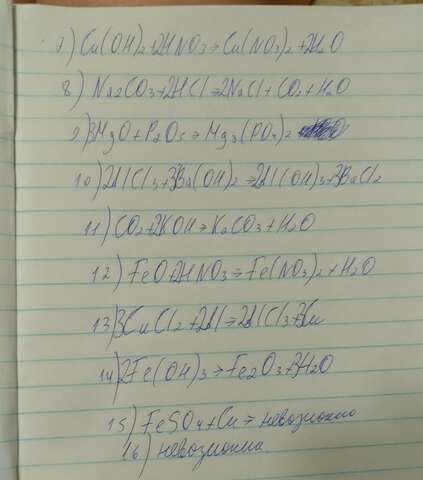 7) Cu(OH)2+2HNO3→Cu(NO3)2+2H2O
8) Na2CO3+2HCl→2NaCl+CO2+H2O
9) 3MgO+P2O5→Mg3(PO4)2
10) 2AlCl3+3Ba(OH)2→2Al(OH)3+3BaCl2
11) CO2+2KOH→K2CO3+H2O
12) FeO+2HNO3→Fe(NO3)2+H2O
13) 3CuCl2+2Al→2AlCl3+3Cu
14) 2Fe(OH)3→Fe2O3+3H2O
15) FeSO4+Cu→невозможно
16) невозможно